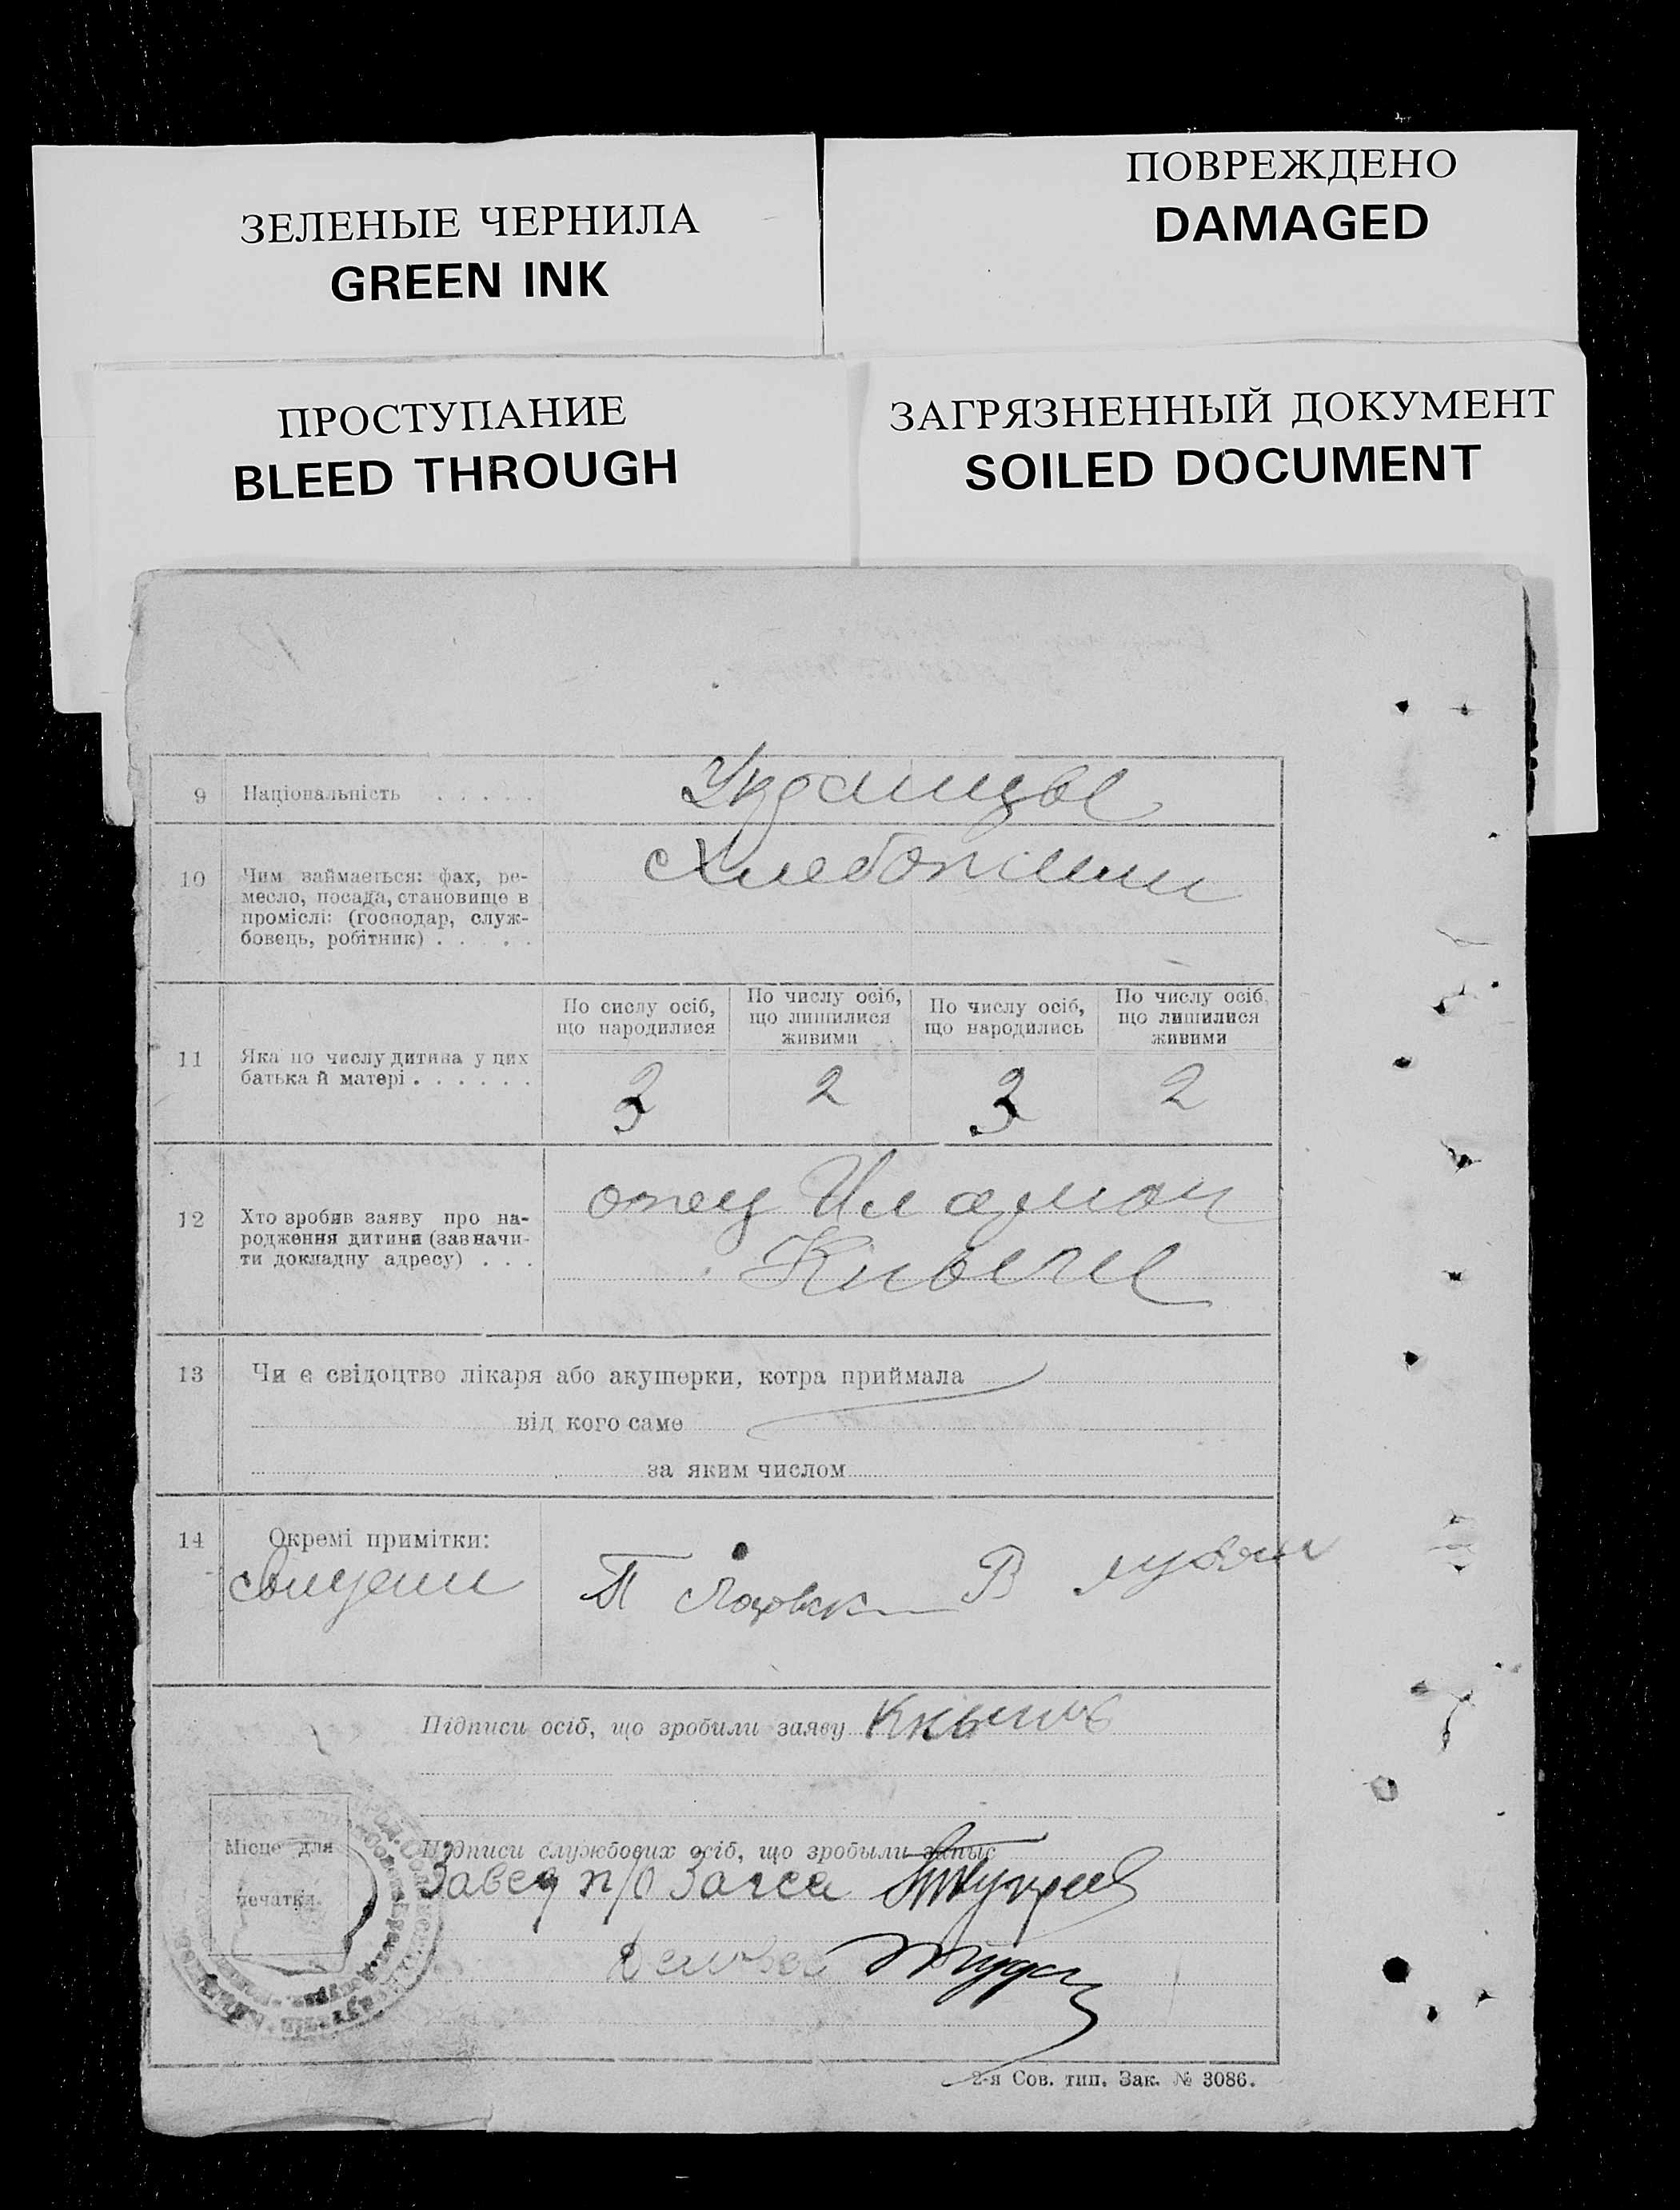 ЗЕЛЕНЫЕ ЧЕРНИЛА
GREEN INK
ПОВРЕЖДЕНО
DAMAGED
ПРОСТУПАНИЕ
BLEED THROUGH
ЗАГРЯЗНЕННЫЙ ДОКУМЕНТ
SOILED DOCUMENT
9 Національність . . . . .
Украинцы
10 Чим займається: фах, ре-
месло, посада, становище в
проміслі: (господар, служ-
бовець, робітник) . . . .
11 Яка по числу дитина у цих
батька й матері . . . . . .
По сислу осіб,
що народилися
По числу осіб,
що лишилися
живими
По числу осіб,
що народились
По числу осіб,
що лишилися
живими
3 2 3 2
12 Хто зробив заяву про на-
родження дитини (зазначи-
ти докладну адресу) . . .
отец
13 Чи є свідоцтво лікаря або акушерки, котра приймала
від кого саме
за яким числом
14 Окремі примітки:
Підписи осіб, що зробили заяву
Місце для
печатки.
Підписи службових осіб, що зробыли запыс
Завед п/о Загса
2-я Сов. тип. Зак. № 3086.